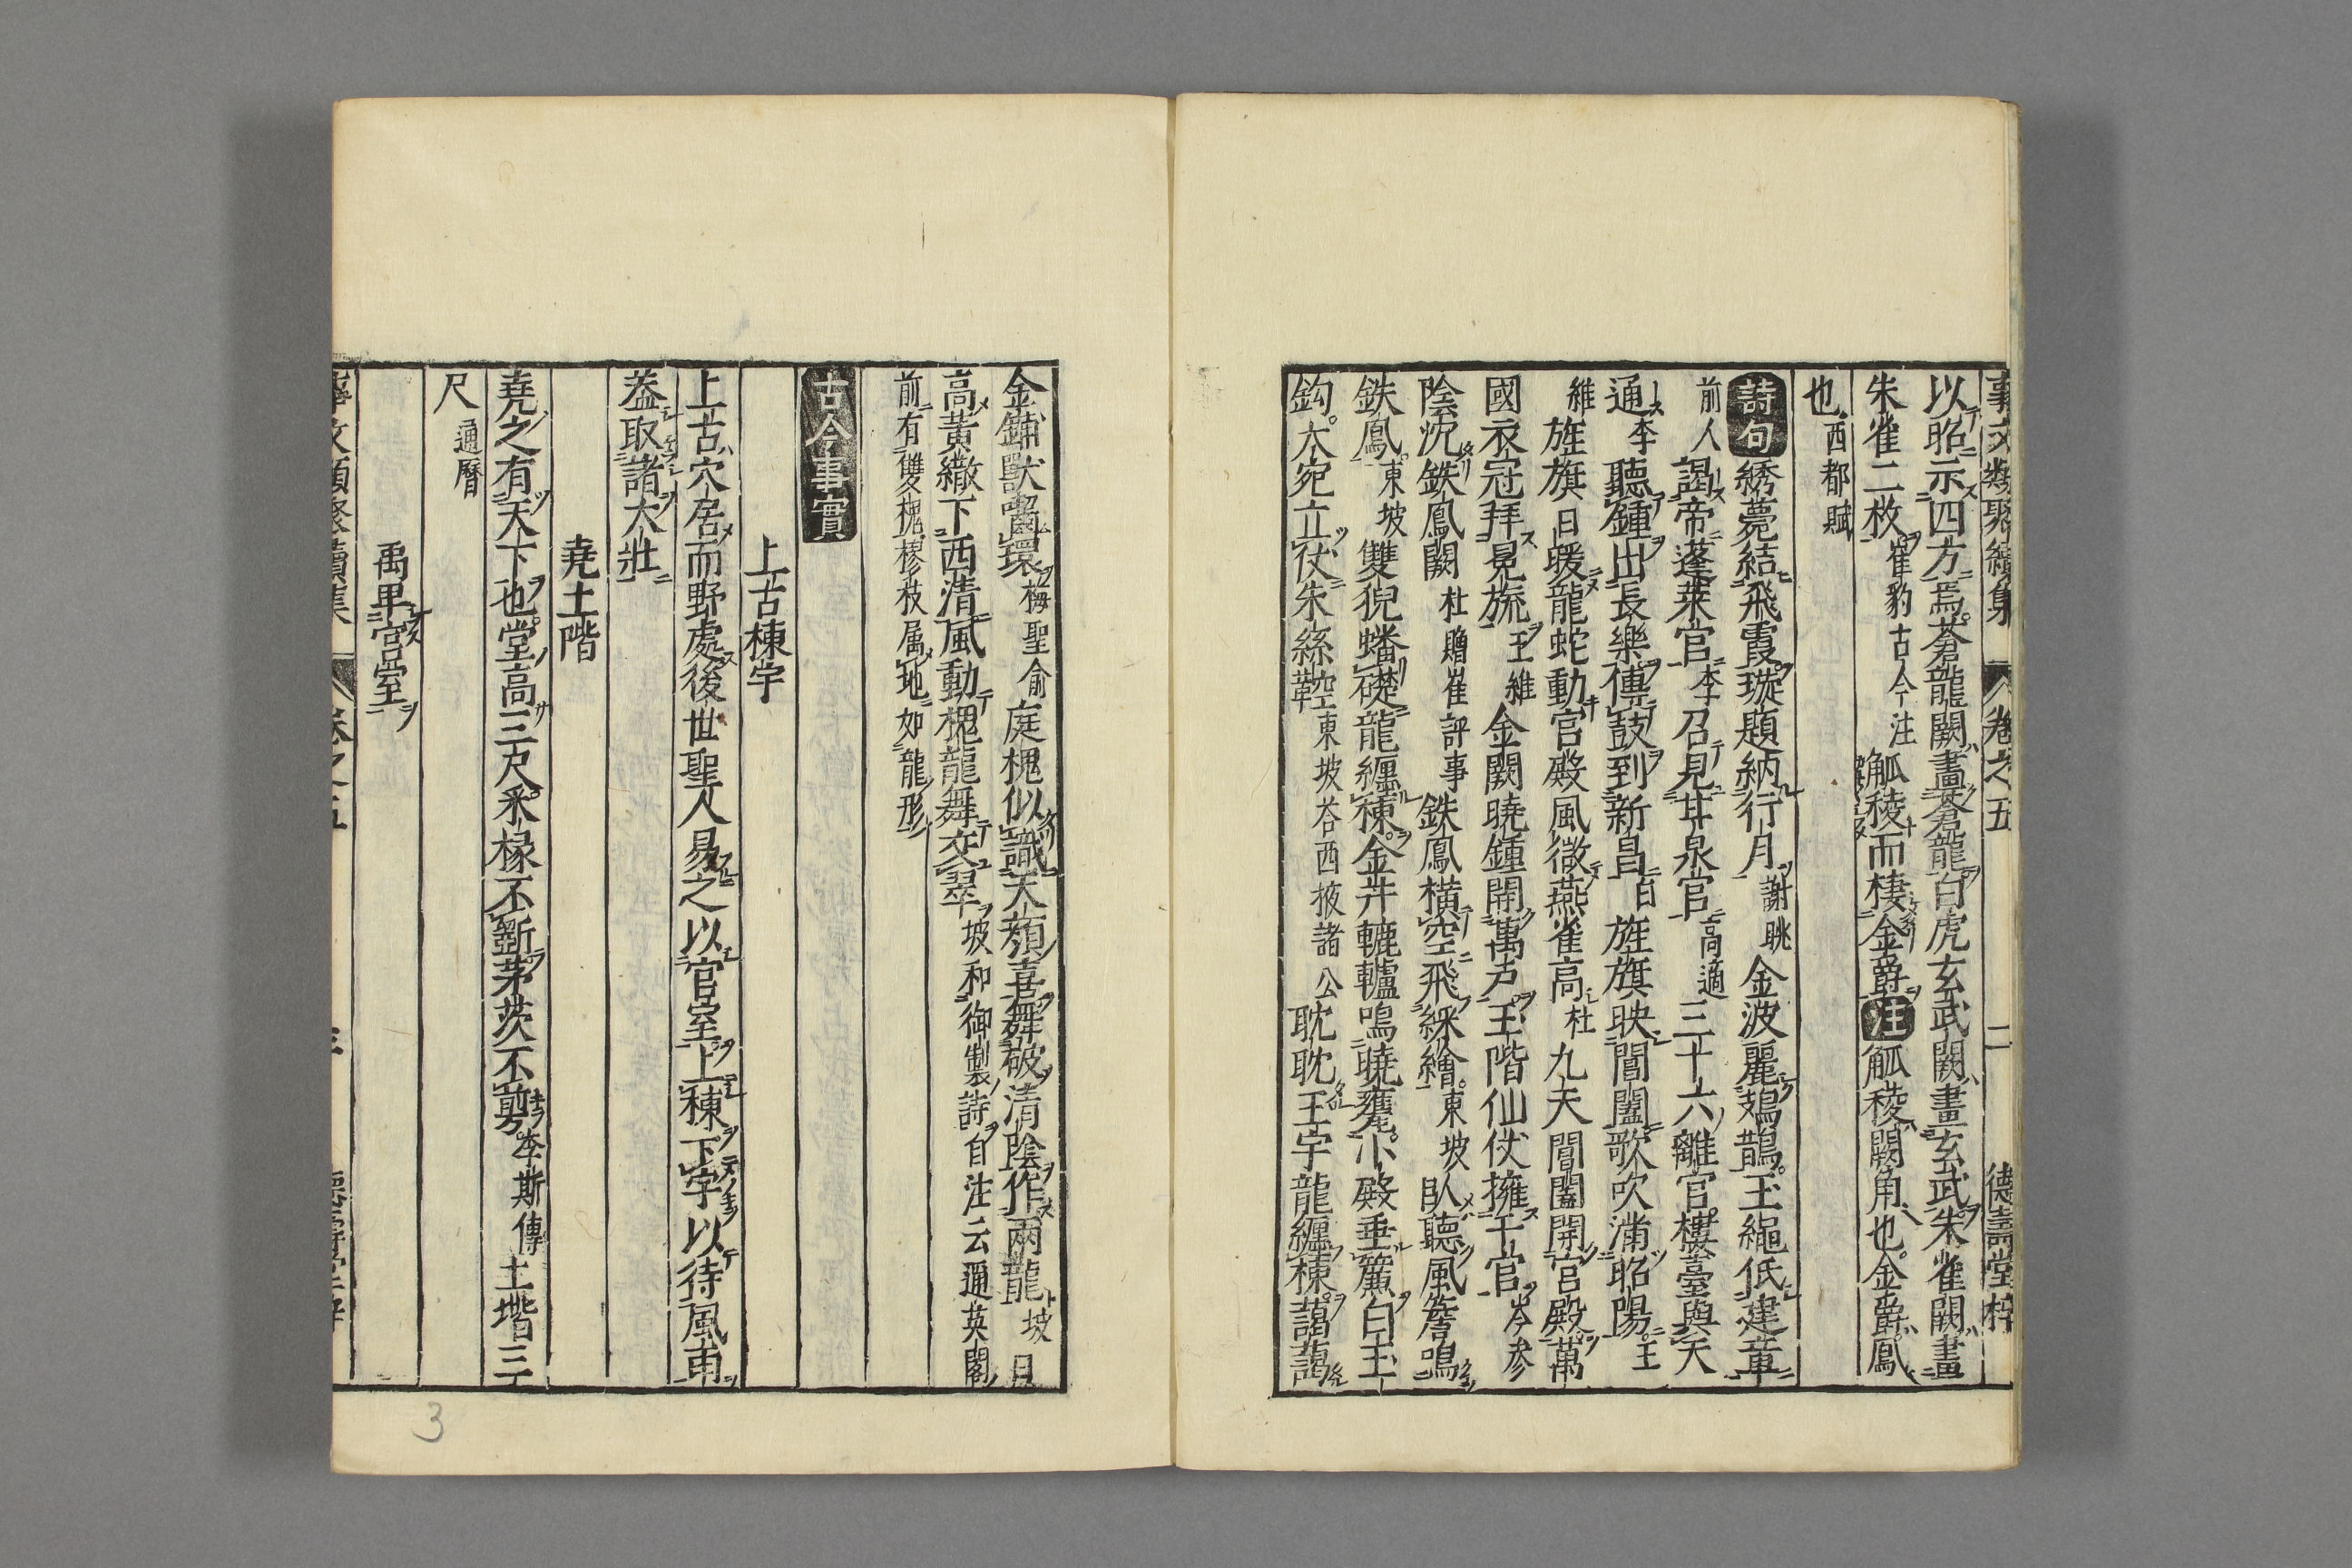 事文類聚續集 卷之五 二 德壽堂梓
以昭示四方焉蒼龍闕畫蒼龍白虎玄武闕畫玄武朱雀闕畫
朱雀二枚崔豹古今注觚稜而棲金爵注觚稜闕角也金爵鳳
也西都賦
詩句綉甍結飛霞璇題納行月謝眺金波麗鳷鵲玉繩低建章
前人謁帝蓬萊宮李召見甘泉宮高適三十六離宮樓臺與天
通李聽鍾出長樂傳鼓到新昌白旌旗映閶闔歌吹滿昭陽王
維旌旗日暖龍蛇動宮殿風微燕雀高杜九天閶闔開宮殿萬
國衣冠拜冕旒王維金闕曉鍾開萬户玉階仙仗擁千官岑參
陰沉鉄鳳闕杜贈崔評事鉄鳳橫空飛綵繪東坡臥聽風簷鳴
鉄鳳東坡雙猊蟠礎龍纏棟金井轆轤鳴曉甕小殿垂簾白玉
鈎大宛立仗朱絲鞚東坡荅西掖諸公耽耽玉宇龍纏棟藹藹
金鋪獸齧環梅聖俞庭槐似識天顏喜舞破清陰作兩龍坡日
高黃繖下西清風動槐龍舞交翠坡和御製詩自注云邇英閣
前有雙槐樛枝属地如龍形
古今事實
上古棟宇
上古穴居而野處後世聖人易之以宮室上棟下宇以待風雨
蓋取諸大壯
堯土階
堯之有天下也堂高三尺采椽不斲茅茨不剪李斯傳土堦三
尺通曆
禹卑宮室
事文類聚續集 卷之五 三 德壽堂梓
3